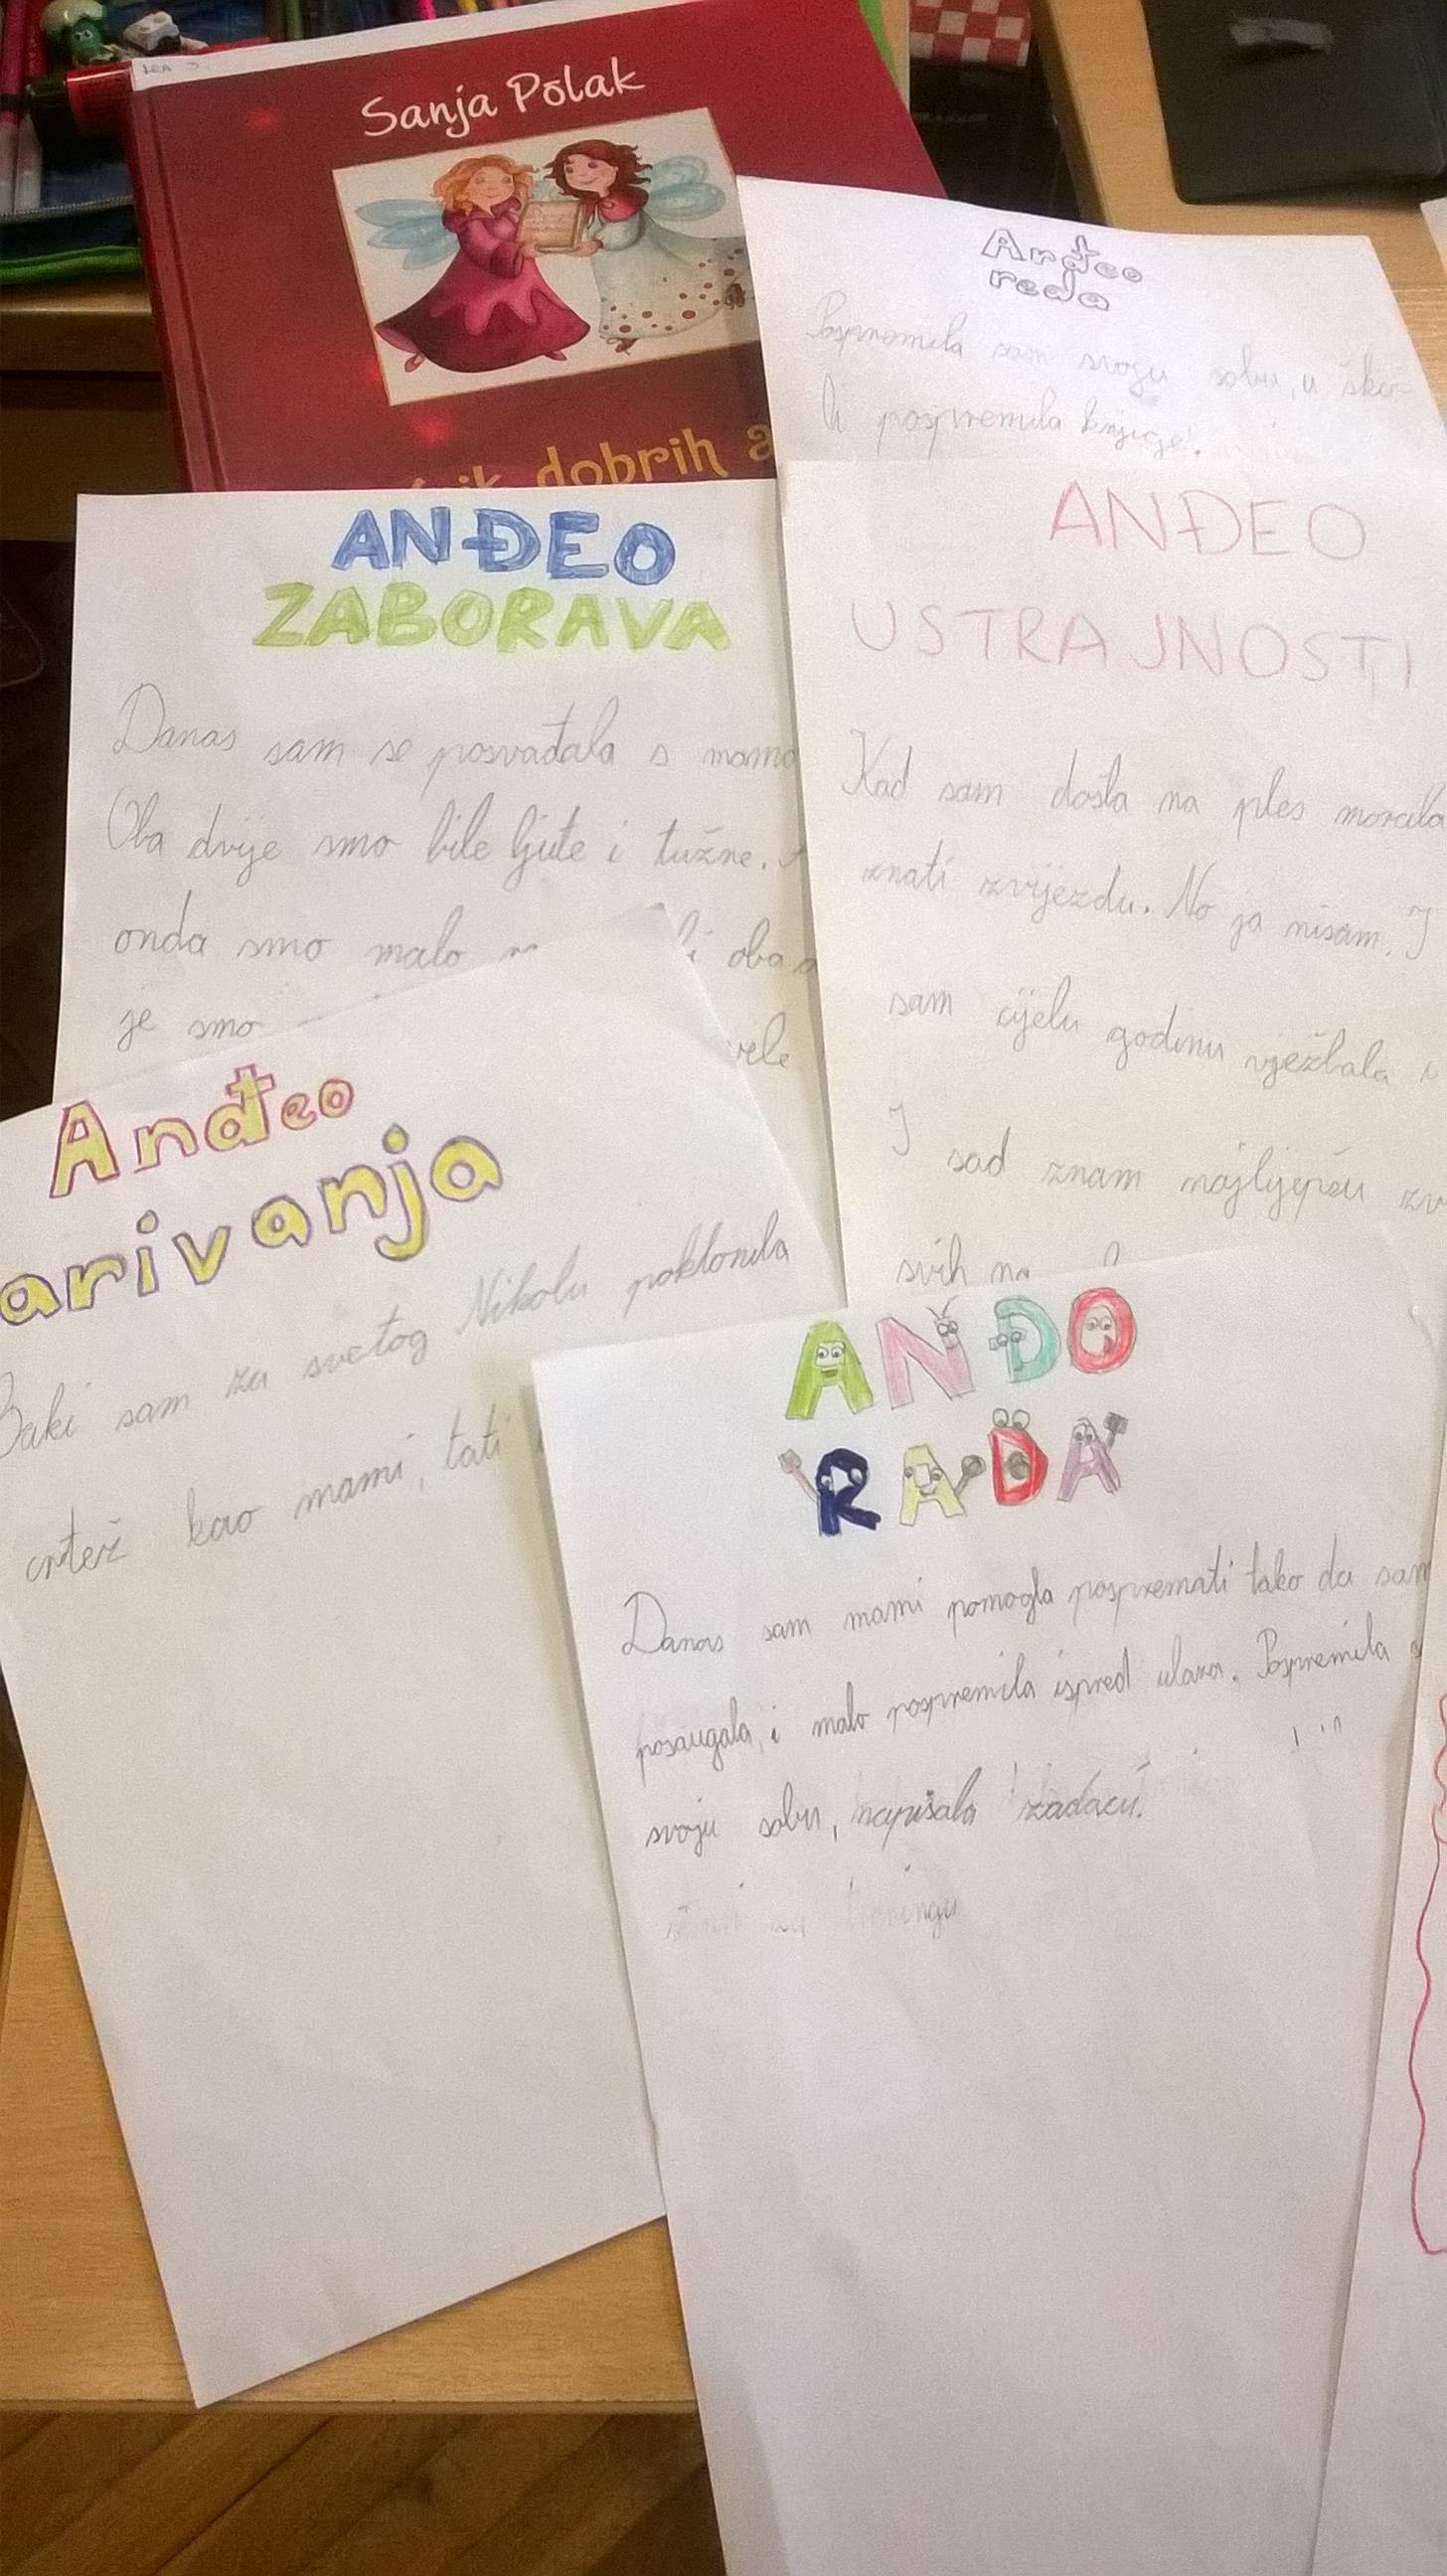 Sanja Polak
dobrih a
Anđeo
reda
Pospremila sam svoju sobu, u ško-
li pospremila knjige.
ANĐEO
ZABORAVA
Danas sam se posvađala s mamo
Oba dvije smo bile ljute i tužne.
onda smo malo oba
je smo
ANĐEO
USTRAJNOSTI
Kad sam došla na ples morala
znati zvijezdu. No ja nisam. I
sam cijelu godinu vježbala i
I sad znam najljepšu zv
svih na
Anđeo
arivanja
Baki sam za svetog Nikolu poklonila
crtež kao mami, tati
ANĐO
RADA
Danas sam mami pomogla pospremati tako da sam
posaugala, i malo pospremila ispred ulaza. Pospremila s
svoju sobu, napisala zadaću.